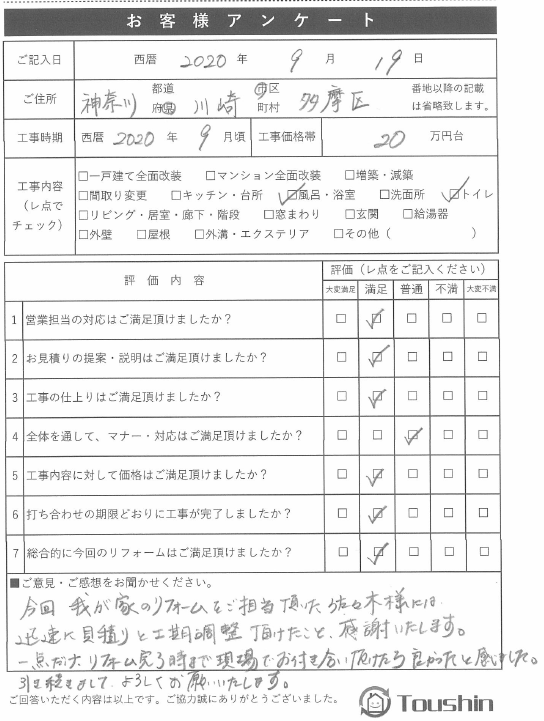 お客様アンケート
ご記入日 西暦 2020 年 9 月 19 日
ご住所 神奈川 都道府県 川崎 市区町村 多摩区 番地以降の記載は省略致します。
工事時期 西暦 2020 年 9 月頃 工事価格帯 20 万円台
工事内容（レ点でチェック）
□一戸建て全面改装 □マンション全面改装 □増築・減築
□間取り変更 □キッチン・台所 ☑風呂・浴室 □洗面所 ☑トイレ
□リビング・居室・廊下・階段 □窓まわり □玄関 □給湯器
□外壁 □屋根 □外溝・エクステリア □その他（ ）
評価内容 評価（レ点をご記入ください）
大変満足 満足 普通 不満 大変不満
1 営業担当の対応はご満足頂けましたか？ □ ☑ □ □ □
2 お見積りの提案・説明はご満足頂けましたか？ □ ☑ □ □ □
3 工事の仕上りはご満足頂けましたか？ □ ☑ □ □ □
4 全体を通して、マナー・対応はご満足頂けましたか？ □ □ ☑ □ □
5 工事内容に対して価格はご満足頂けましたか？ □ ☑ □ □ □
6 打ち合わせの期限どおりに工事が完了しましたか？ □ ☑ □ □ □
7 総合的に今回のリフォームはご満足頂けましたか？ □ ☑ □ □ □
■ご意見・ご感想をお聞かせください。
今回 我が家のリフォームをご担当頂いた佐々木様には
迅速に見積りと工期調整頂けたこと、感謝いたします。
一点だけ、リフォーム完了時まで現場でお付き合い頂けたら良かったと感じました。
引き続きまして、よろしくお願いいたします。
ご回答いただく内容は以上です。ご協力誠にありがとうございました。
Toushin